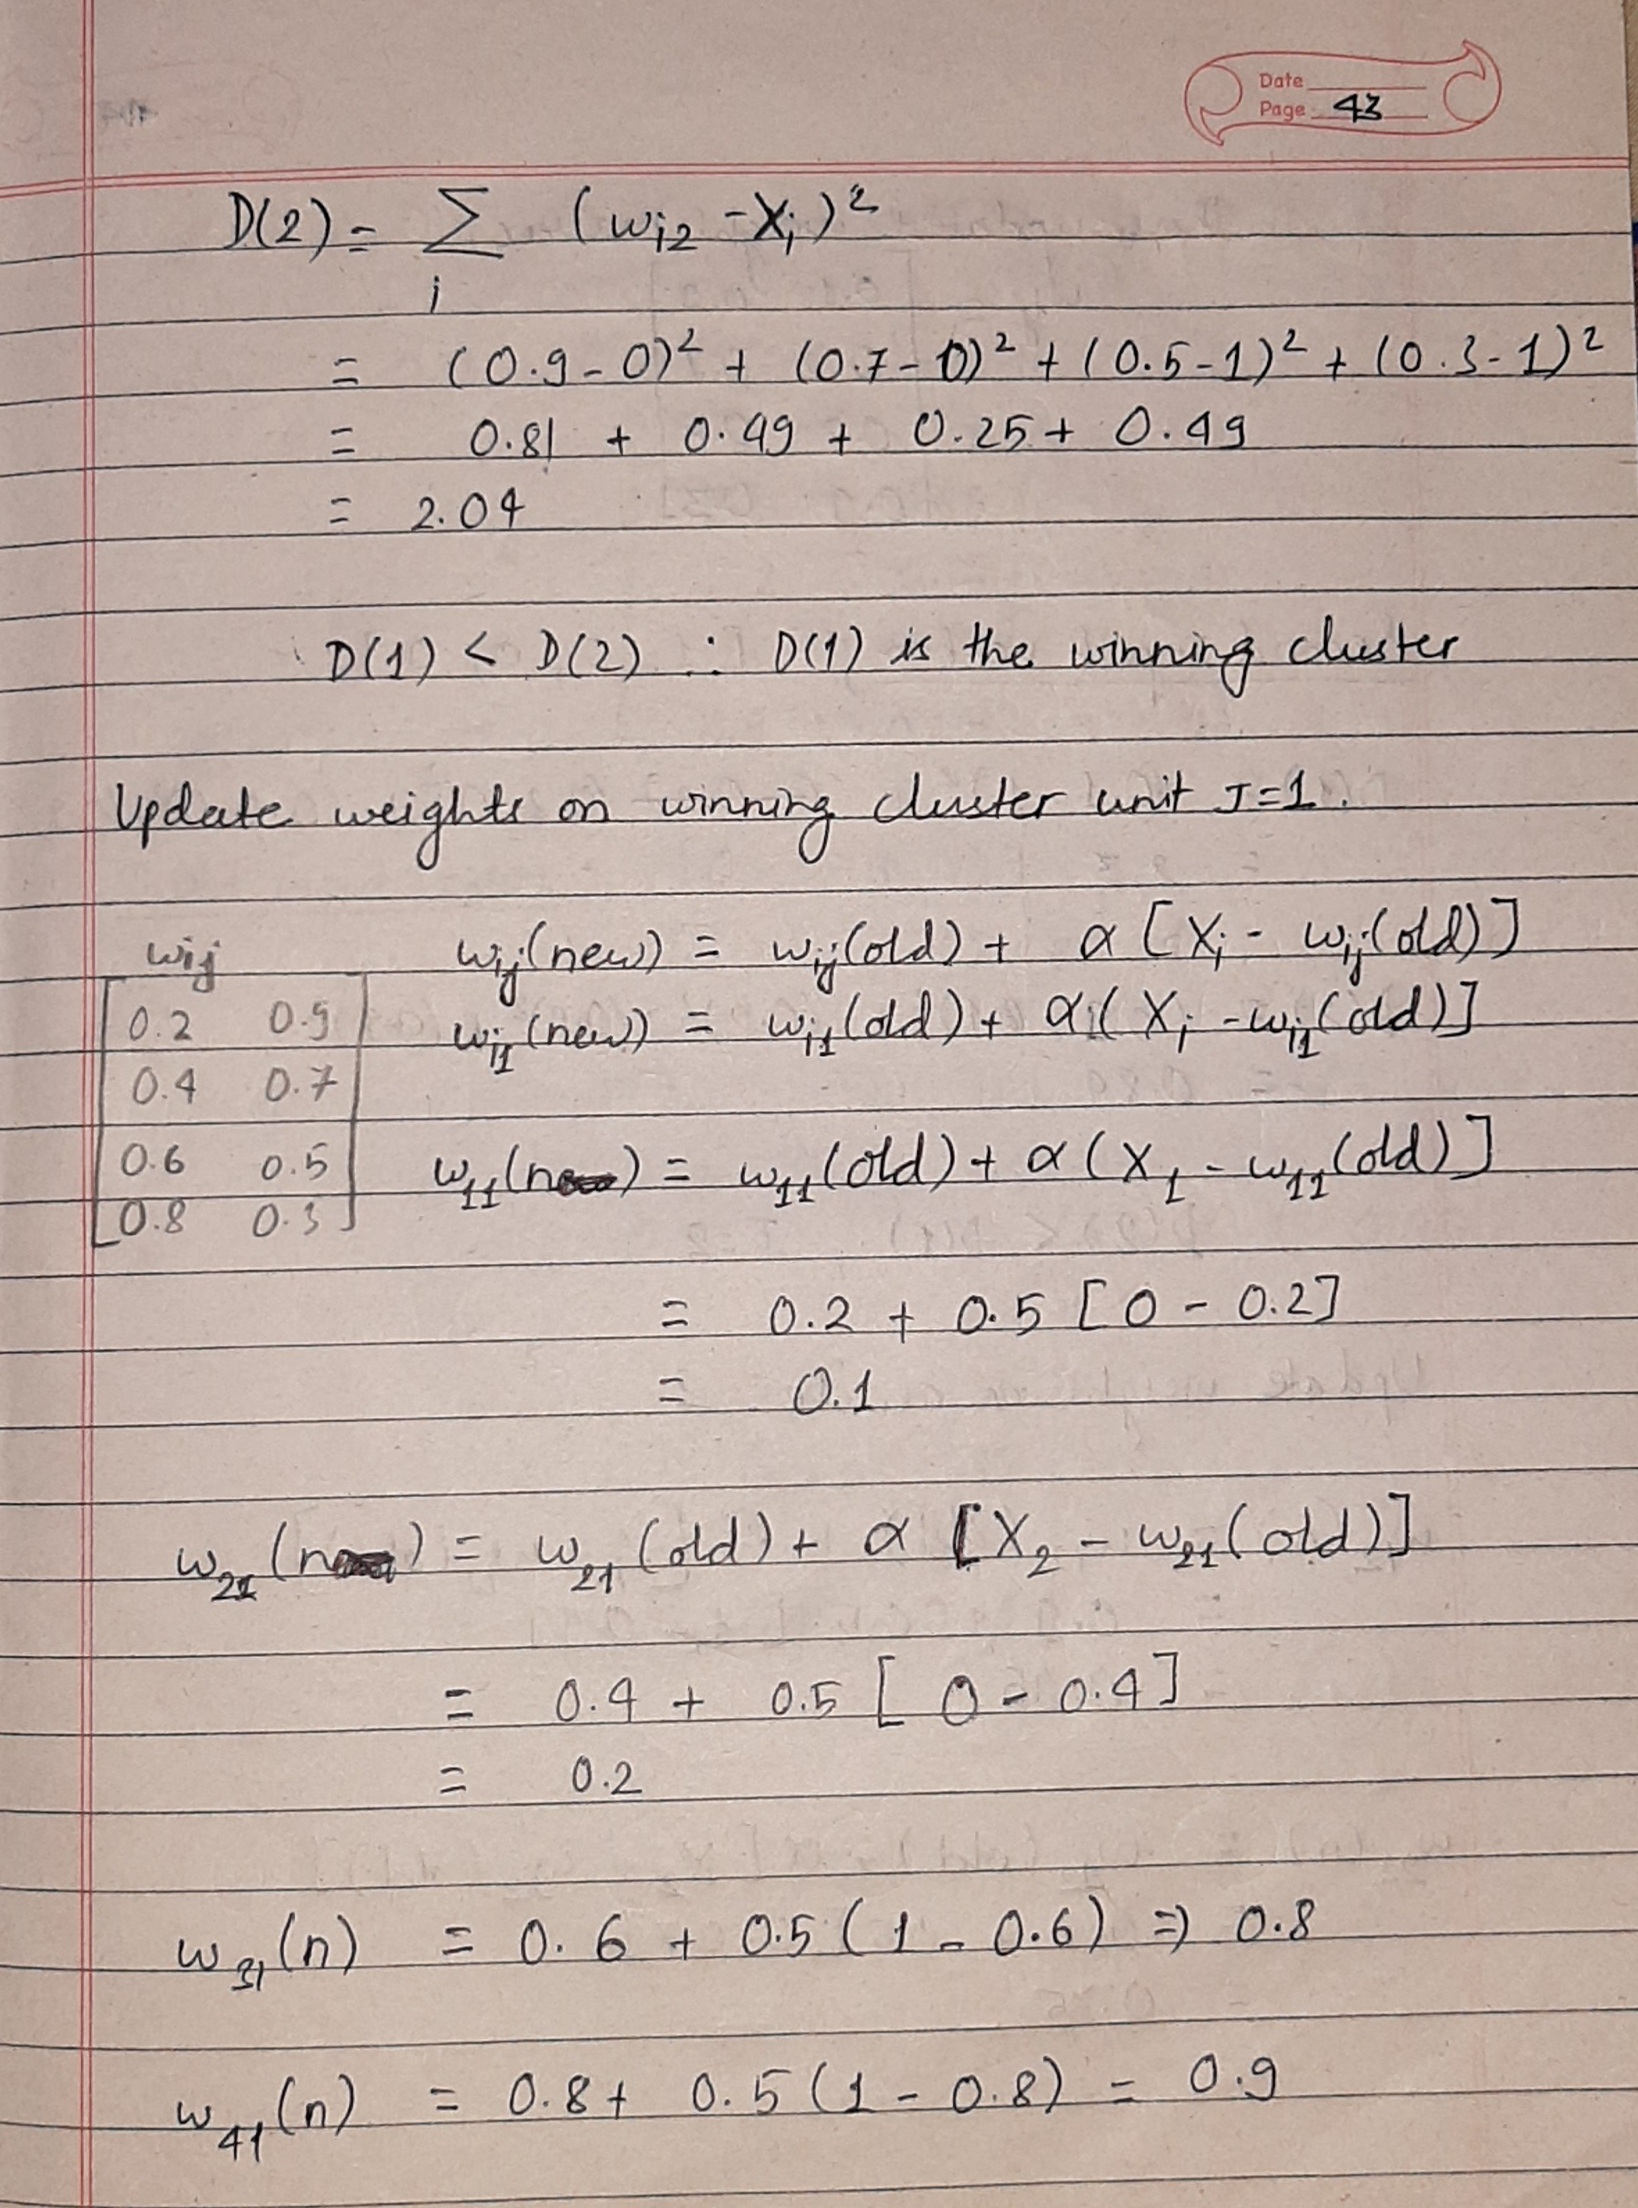 Date
Page 43
D(2) = Σ (wi2 - Xi)²
i
= (0.9 - 0)² + (0.7 - 0)² + (0.5 - 1)² + (0.3 - 1)²
= 0.81 + 0.49 + 0.25 + 0.49
= 2.04
D(1) < D(2) ∴ D(1) is the winning cluster
Update weights on winning cluster unit J=1.
wij
0.2 0.9
0.4 0.7
0.6 0.5
0.8 0.3
wij(new) = wij(old) + α [Xi - wij(old)]
wi1(new) = wi1(old) + α( Xi - wi1(old)]
w11(n) = w11(old) + α(X1 - w11(old)]
= 0.2 + 0.5 [0 - 0.2]
= 0.1
w21(n) = w21(old) + α [X2 - w21(old)]
= 0.4 + 0.5 [0 - 0.4]
= 0.2
w31(n) = 0.6 + 0.5(1 - 0.6) ⇒ 0.8
w41(n) = 0.8 + 0.5(1 - 0.8) = 0.9